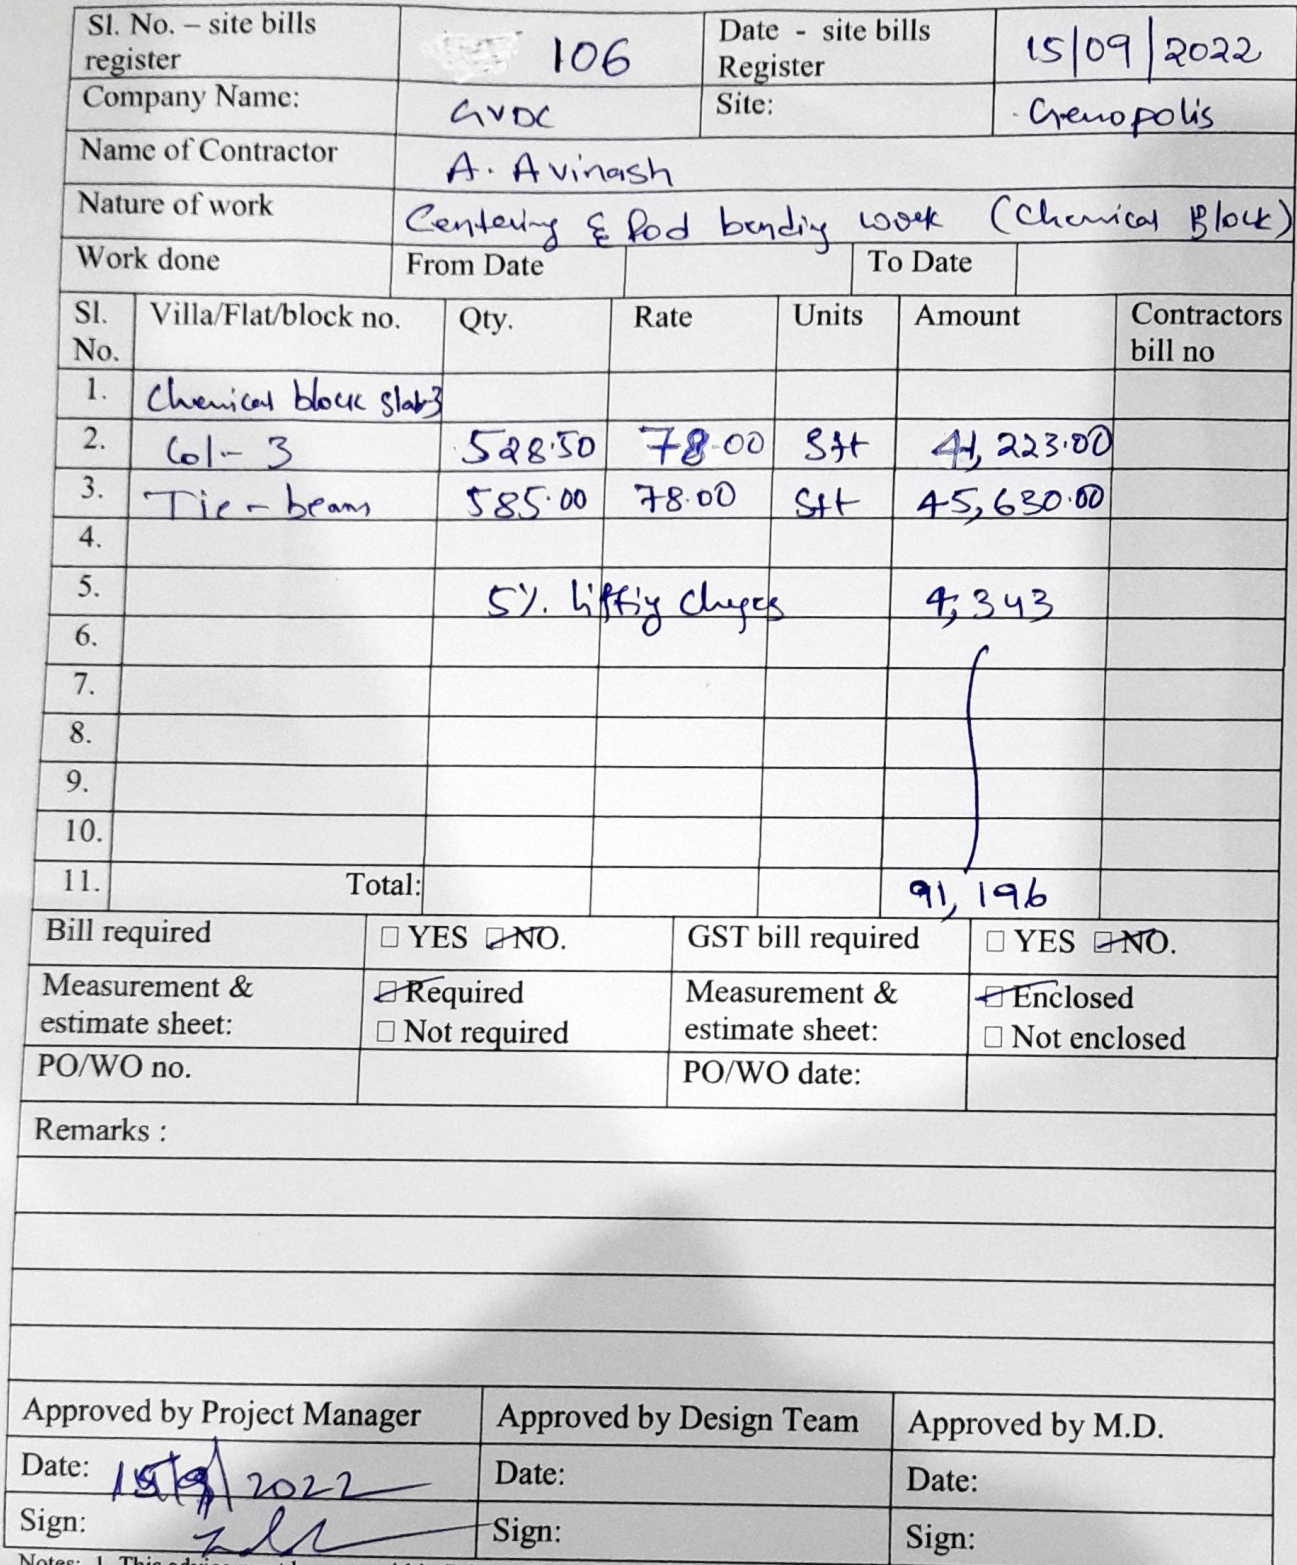 Sl. No. – site bills register 106 Date - site bills Register 15/09/2022
Company Name: GVDC Site: Genopolis
Name of Contractor A. Avinash
Nature of work Centering & Rod bending work (Chemical Block)
Work done From Date To Date
Sl. No. Villa/Flat/block no. Qty. Rate Units Amount Contractors bill no
1. Chemical block slab3
2. Col - 3 528.50 78.00 Sft 41,223.00
3. Tie - beams 585.00 78.00 Sft 45,630.00
4.
5. 5%. liftig charges 4,343
6.
7.
8.
9.
10.
11. Total: 91,196
Bill required YES NO. GST bill required YES NO.
Measurement & estimate sheet: Required Not required Measurement & estimate sheet: Enclosed Not enclosed
PO/WO no. PO/WO date:
Remarks :
Approved by Project Manager Approved by Design Team Approved by M.D.
Date: 15/9/2022 Date: Date:
Sign: Sign: Sign:
Notes: 1. This